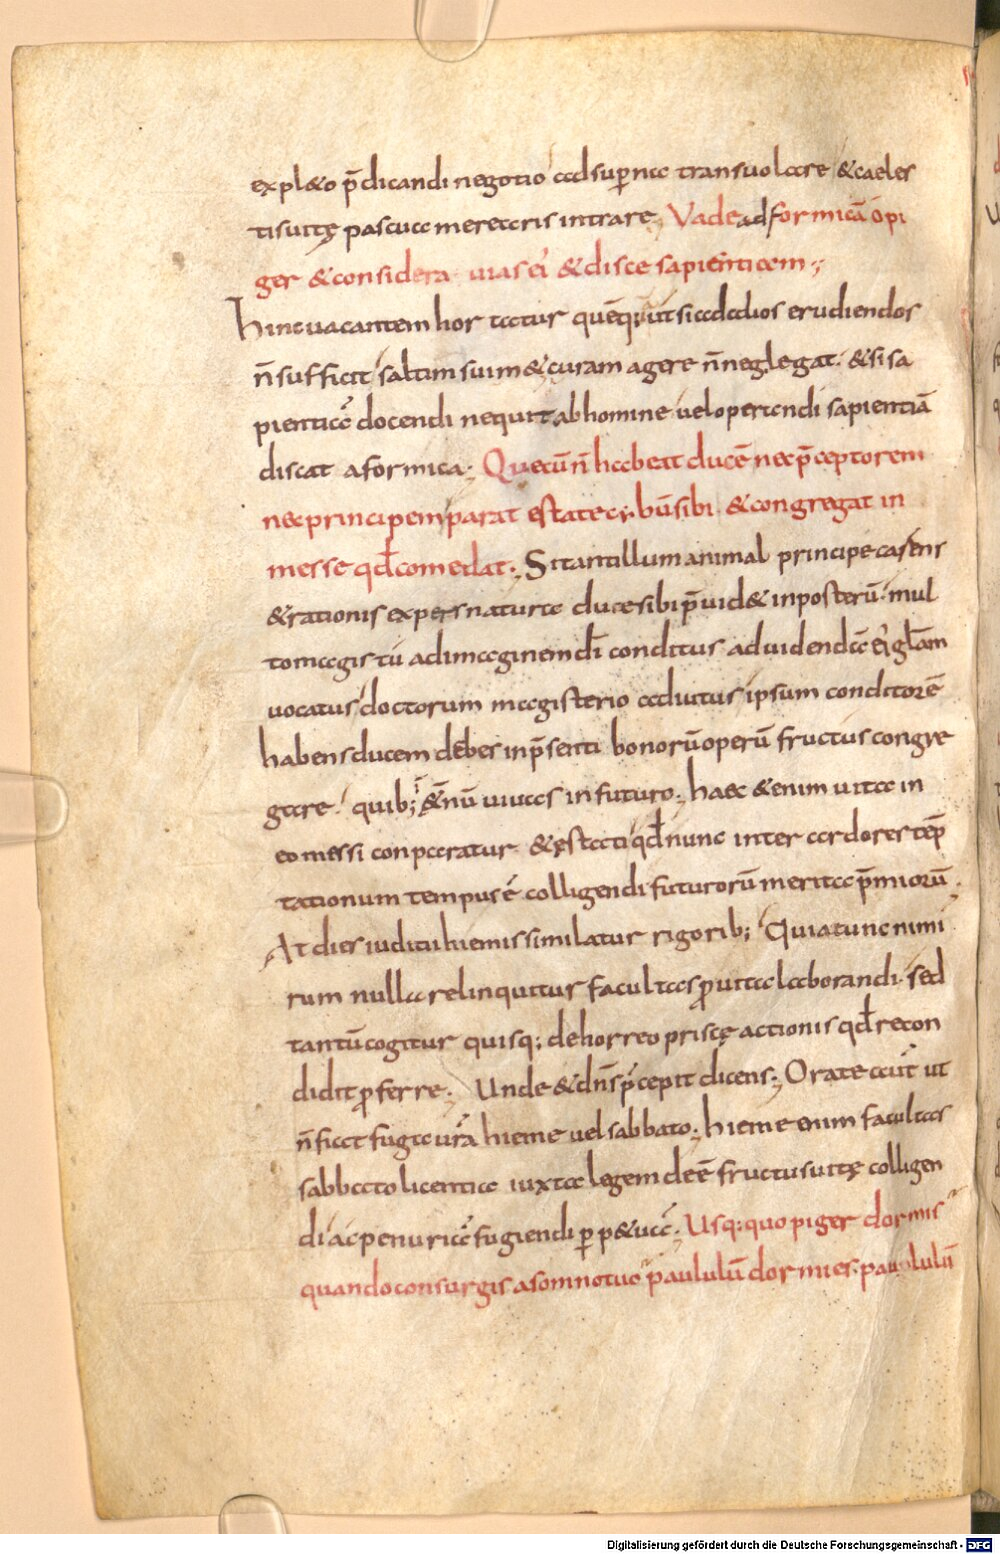 expl&o p̄dicandi negotio ad suꝑna transuolare &caeles
tis uitę pascua merearis intrare; Vade ad formicā o pi
ger &considera uias ei &disce sapientiam;
Hinc uacantem hortatur quēq; ut si ad alios erudiendos
n̄ sufficit saltim sui m& curam agere n̄ neglegat. &si sa
pientiā docendi nequit ab homine uel operandi sapientiā
discat a formica; Quae cū n̄ habeat ducē nec p̄ceptorem
nec principem parat estate cybū sibi &congregat in
messe qđ comedat; Si tantillum animal principe carens
&rationis expers natura duce sibi p̄uid& in posterū. mul
to magis tu ad imaginem dī conditus ad uidendā ei głam
uocatus doctorum magisterio adiutus ipsum conditorē
habens ducem debes in p̄senti bonorū operū fructus congre
gare quib; &̄nū uiuas in futuro; haec &enim uita in
eo messi conparatur &ęstati qđ nunc inter ardores tēp
tationum tempus ē colligendi futurorū merita p̄miorū;
At dies iuditii hiemis similatur rigorib; Quia tunc nimi
rum nulla relinquitur facultas ꝓ uita laborandi. sed
tantū cogitur quisq; de horreo priscę actionis qđ recon
didit ꝓferre; Unde &dn̄s p̄cepit dicens; Orate aut̄ ut
n̄ fiat fuga ur̄a hieme uel sabbato; hieme enim facultas
sabbato licentia iuxta legem deē fructus uitę colligen
di ac penuriā fugiendi ꝑp&uā; Usq; quo piger dormis
quando consurgis a somno tuo paululū dormies. paululū
Digitalisierung gefördert durch die Deutsche Forschungsgemeinschaft - DFG